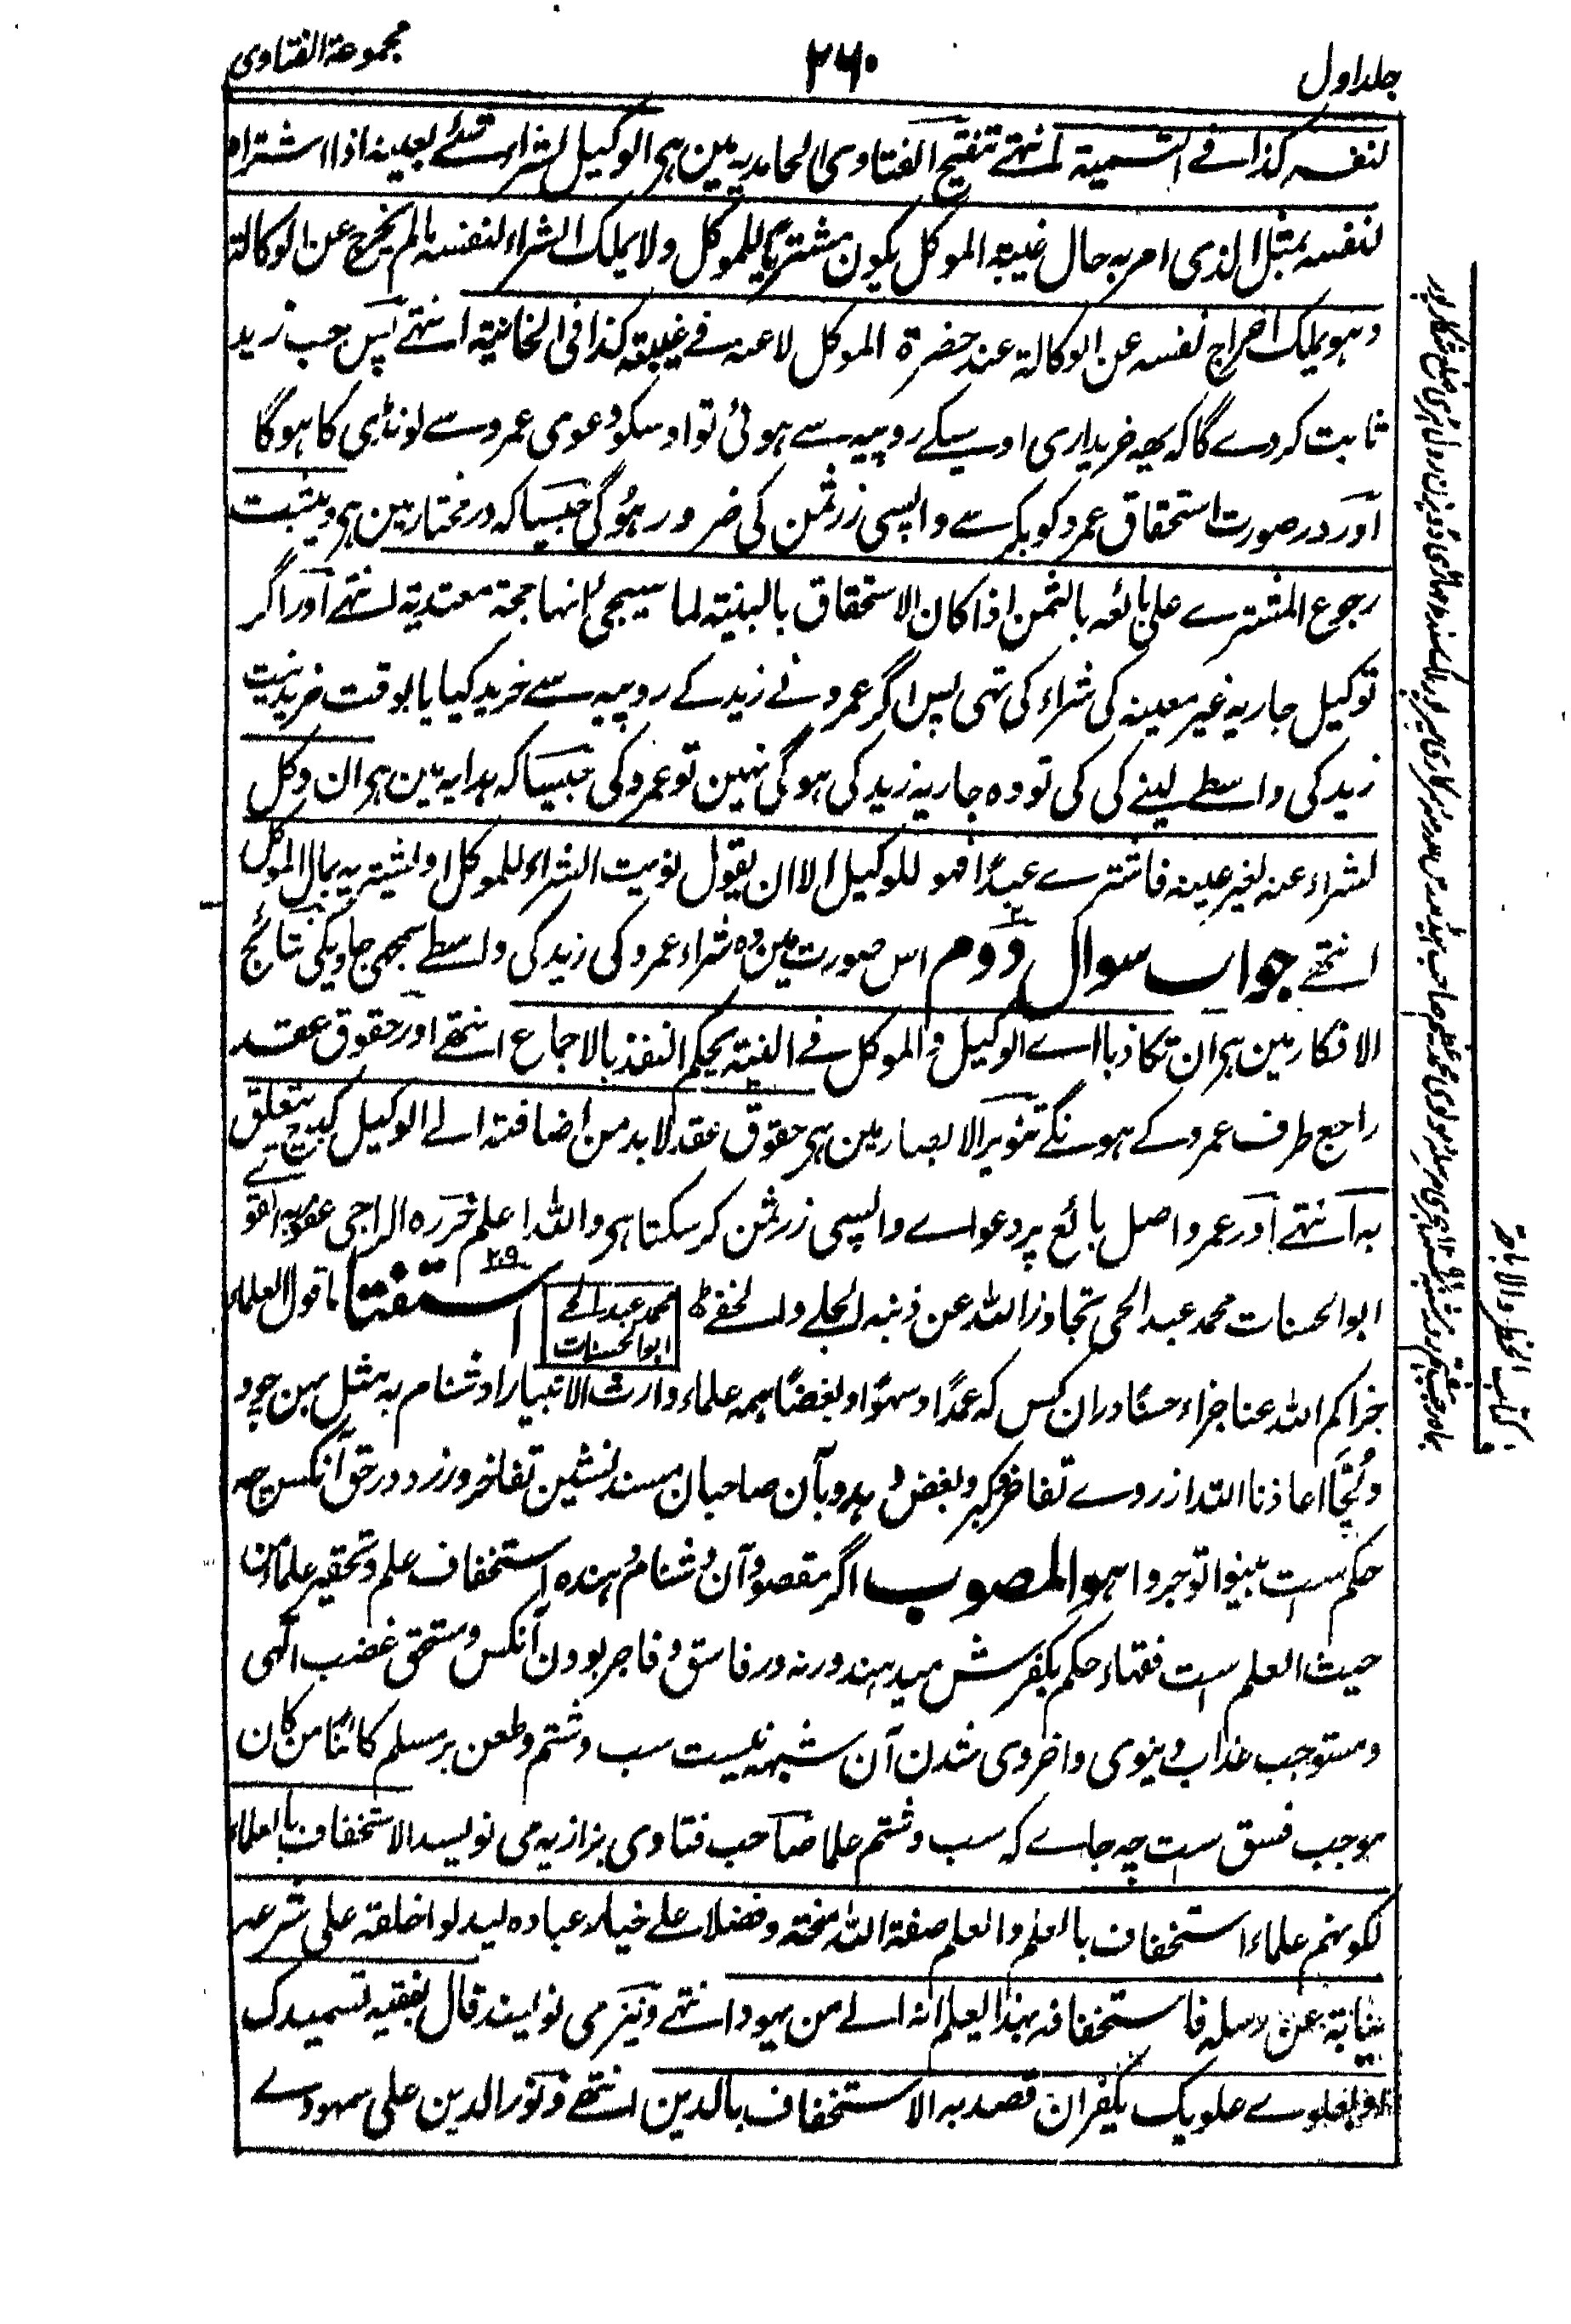 جلد اول
۲۶۰
مجموعۃ الفتاوی
لنفسہ کذا فے التسمیۃ انتہے تنقیح الفتاوی الحامدیہ مین ہی الوکیل بشراء شئے بعینہ اذا اشتراہ
لنفسہ بمثل الذی امر بہ حال غیبتہ الموکل یکون مشتریا للموکل ولا یملک الشراء لنفسہ مالم یخرج عن الوکالۃ
وہو یملک اخراج نفسہ عن الوکالۃ عند حضرۃ الموکل لا عنہ فے غیبتہ کذا فی الخانیۃ انتہے پس جب زید
ثابت کر دے گا کہ یہہ خریداری اوسیکے روپیہ سے ہوئی تو اوسکو دعوی عمرو سے لونڈی کا ہوگا
اور در صورت استحقاق عمرو کو بکر سے واپسی زر ثمن کی ضرور ہوگی جیسا کہ در مختار مین ہی ویثبت
رجوع المشترے علی بائعہ بالثمن اذا کان الاستحقاق بالبینۃ لما سیجیٔ انہا حجۃ معتدیۃ انتہے اور اگر
توکیل جاریہ غیر معینہ کی شراء کی تہی پس اگر عمرو نے زید کے روپیہ سے خرید کیا یا بوقت خرید نیت
زید کی واسطے لینے کی کی تو وہ جاریہ زید کی ہوگی نہین تو عمرو کی جیسا کہ ہدایہ مین ہی ان وکل
لشراء عبد لغیر عینہ فاشترے عبداً فہو للوکیل الا ان یقول نویت الشراء للموکل او یشتریہ بمال الموکل
انتہے جواب سوال دوم اس صورت مین وہ شراء عمرو کی زید کی واسطے سمجھی جاویگی نتائج
الافکار مین ہی ان تکاذبا اے الوکیل والموکل فے النیۃ یحکم النقد بالاجماع انتہے اور حقوق عقد
راجع طرف عمرو کے ہونگے تنویر الابصار مین ہی حقوق عقد لابد من اضافتہ الے الوکیل کبیع تتعلق
بہ انتہے اور عمرو اصل بائع پر دعوے واپسی زر ثمن کر سکتا ہی واللہ اعلم حررہ الراجی عفو ربہ القوے
ابو الحسنات محمد عبد الحی تجاوز اللہ عن ذنبہ الجلے والخفے محمد عبد الحے ابو الحسنات ۲۰۹ استفتا ما قول العلماء
جزاکم اللہ عنا جزاء حسنا دران کس کہ عمداً و سہواً و بغضاً ہمہ علماء وارث الانبیا را دشنام بہ مثل بہن چود
اعاذنا اللہ از روے تفاخر و کبر و بغض دہد و بآن صاحبان مسند نشین تفاخر ورزد در حق آنکس چہ
حکم ست بینوا توجروا ہو المصوب اگر مقصود آن دشنام دہندہ استخفاف علم و تحقیر علماء من
حیث العلم ست فقہاء حکم بکفرش میدہند ورنہ در فاسق و فاجر بودن آنکس و مستحق غضب الٰہی
و مستوجب عذاب دینوی و اخروی شدن آن شبہہ نیست سب و شتم و طعن بر مسلم کائنا من کان
موجب فسق ست چہ جاے کہ سب و شتم علما صاحب فتاوی بزازیہ می نویسد الاستخفاف بالعلماء
لکونہم علماء استخفاف بالعلم والعلم صفۃ اللہ منحۃ وفضلا علے خیار عبادہ لیدلوا خلقہ علی شرعہ
نیابۃ عن رسلہ فاستخفافہ بہذا یعلم انہ الے من یہود انتہے و نیز می نویسد قال لفقیہ
علویک یکفر ان قصد بہ الاستخفاف بالدین انتہے و نور الدین علی سمہودے
کتاب الحظر والاباحۃ